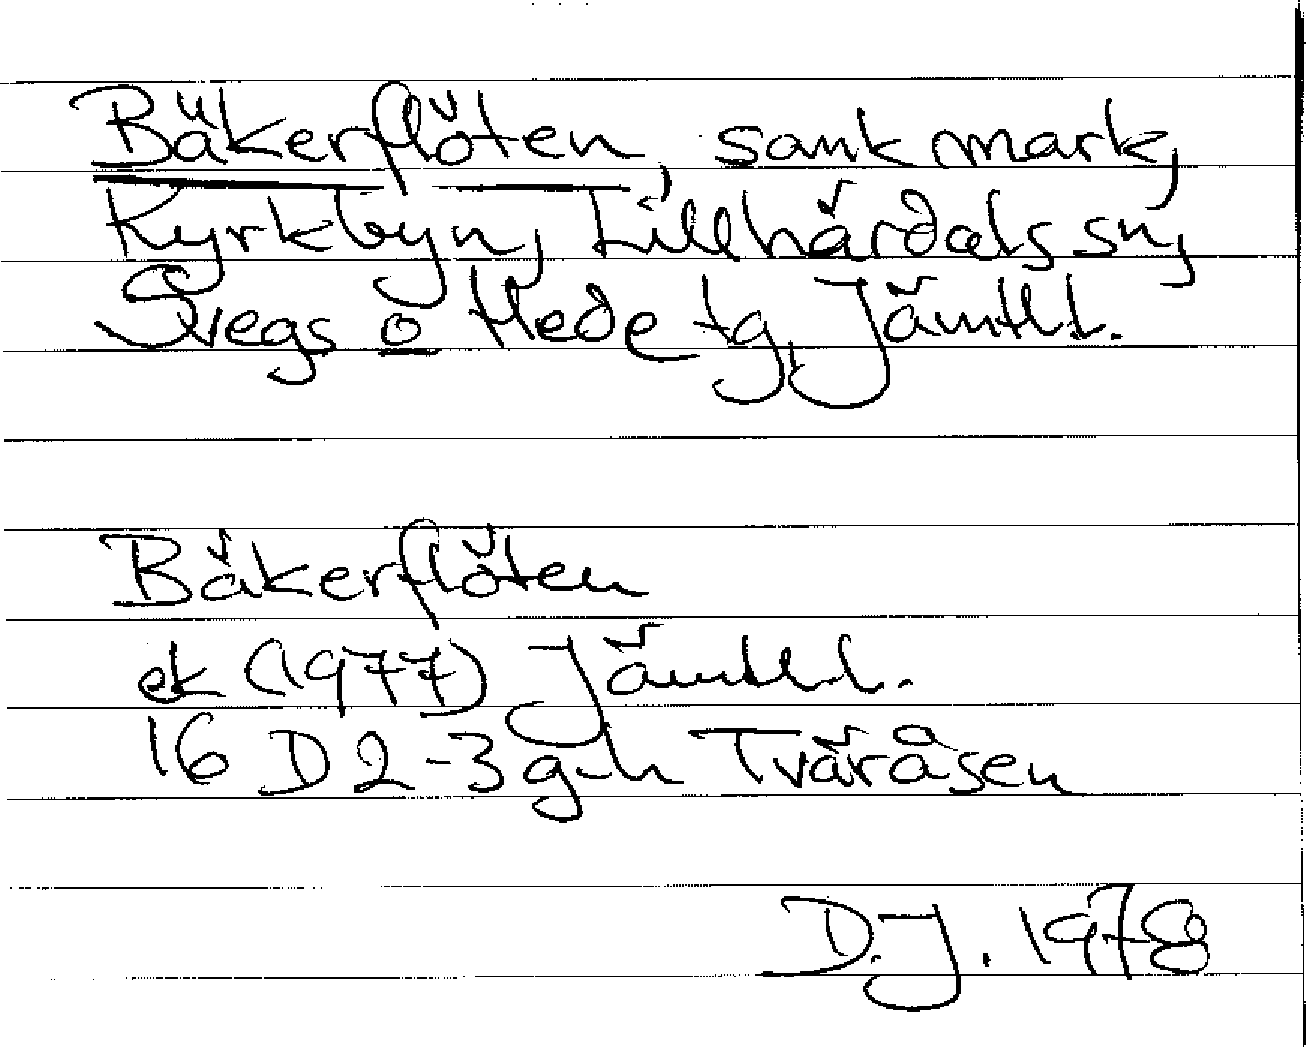 Bäkerflöten, sank mark,
Kyrkbyn, Lillhärdals sn,
Svegs o Hede tg, Jämtl.l.
Bäkerflöten
ek (1977) Jämtl.l.
16 D 2-3 g-h Tväråsen
D.J. 1978